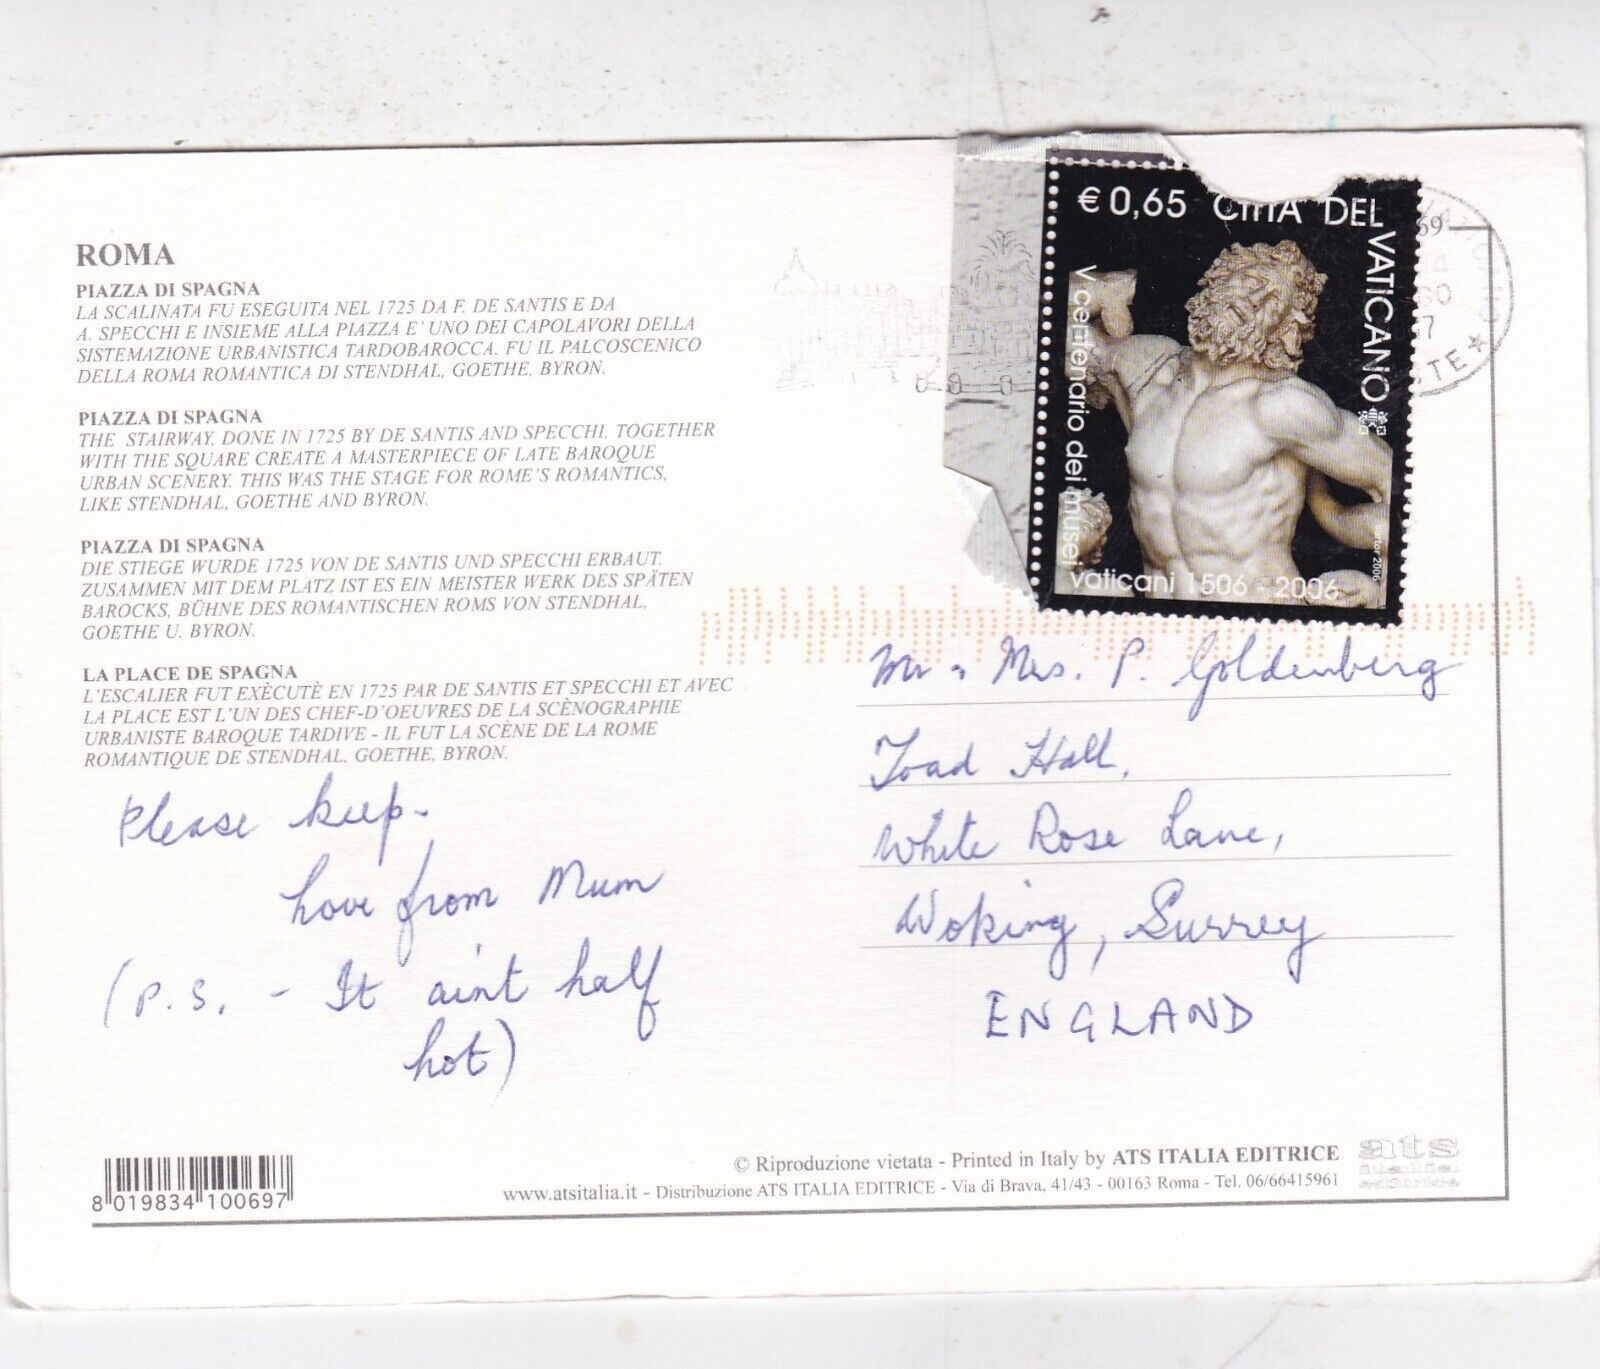 ROMA
PIAZZA DI SPAGNA
LA SCALINATA FU ESEGUITA NEL 1725 DA F. DE SANTIS E DA
A. SPECCHI E INSIEME ALLA PIAZZA E' UNO DEI CAPOLAVORI DELLA
SISTEMAZIONE URBANISTICA TARDOBAROCCA. FU IL PALCOSCENICO
DELLA ROMA ROMANTICA DI STENDHAL, GOETHE, BYRON.
PIAZZA DI SPAGNA
THE STAIRWAY, DONE IN 1725 BY DE SANTIS AND SPECCHI, TOGETHER
WITH THE SQUARE CREATE A MASTERPIECE OF LATE BAROQUE
URBAN SCENERY. THIS WAS THE STAGE FOR ROME'S ROMANTICS,
LIKE STENDHAL, GOETHE AND BYRON.
PIAZZA DI SPAGNA
DIE STIEGE WURDE 1725 VON DE SANTIS UND SPECCHI ERBAUT.
ZUSAMMEN MIT DEM PLATZ IST ES EIN MEISTER WERK DES SPÄTEN
BAROCKS, BÜHNE DES ROMANTISCHEN ROMS VON STENDHAL,
GOETHE U. BYRON.
LA PLACE DE SPAGNA
L'ESCALIER FUT EXÈCUTÈ EN 1725 PAR DE SANTIS ET SPECCHI ET AVEC
LA PLACE EST L'UN DES CHEF-D'OEUVRES DE LA SCÈNOGRAPHIE
URBANISTE BAROQUE TARDIVE - IL FUT LA SCÈNE DE LA ROME
ROMANTIQUE DE STENDHAL, GOETHE, BYRON.
Please keep.
Love from Mum
(P.S. - It ain't half
hot)
€ 0,65 CITTÀ DEL VATICANO
V centenario dei musei
vaticani 1506 - 2006
2006
69
Mr & Mrs. P. Goldenberg
Toad Hall,
White Rose Lane,
Woking, Surrey
ENGLAND
8 019834 100697
© Riproduzione vietata - Printed in Italy by ATS ITALIA EDITRICE
www.atsitalia.it - Distribuzione ATS ITALIA EDITRICE - Via di Brava, 41/43 - 00163 Roma - Tel. 06/66415961
ats
italia
editrice